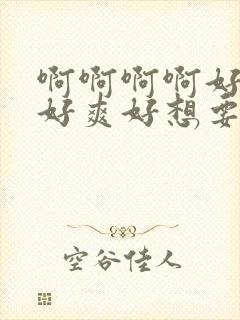 啊啊啊啊好
好爽好想要
空谷佳人